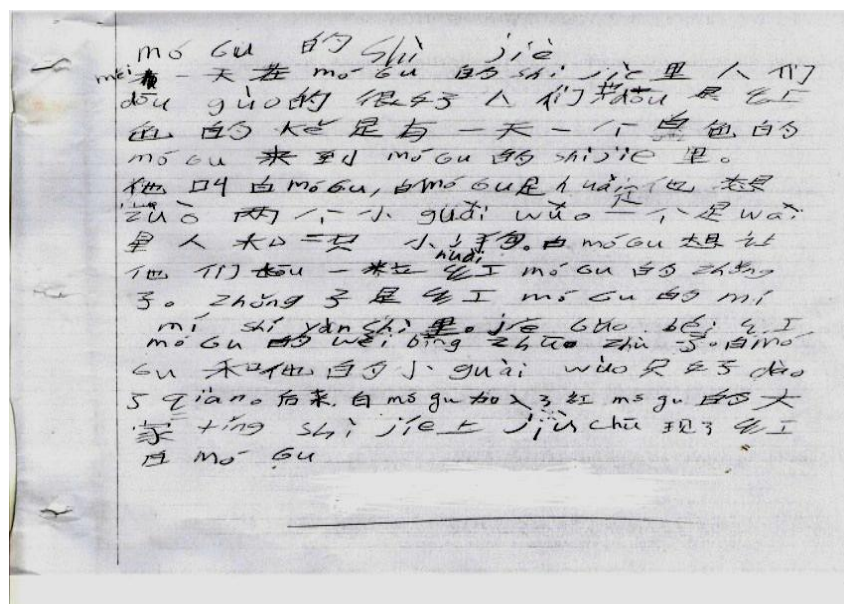 mó Gu 的 Shì jiè
měi 一天在 mó Gu 的 shì jiè 里人们
dōu guò的很好人们 dōu 是红
色的 kě 是有一天一个白色的
mó Gu 来到 mó Gu 的 shì jiè 里。
他叫白 mó Gu, 白 mó Gu 是 huài 他想
zuò 两个小 guài wùo 一个是 wài
星人和一只小。白 mó Gu 想让
他们 tōu 一粒红 mó Gu 的 zhǒng
子。zhǒng 子是红工 mó Gu 的 mí
mí shí yàn shì 里。jié Guo bèi 红
mó Gu 的 wèi bīng zhuō zhù 了。白 mó
Gu 和他的小 guài wùo 只好 dào
了 qiàn。后来,白 mó gu 加入了红 mó gu 的大
家 tíng shì jiè 上 jiù chū 现了红
白 mó Gu